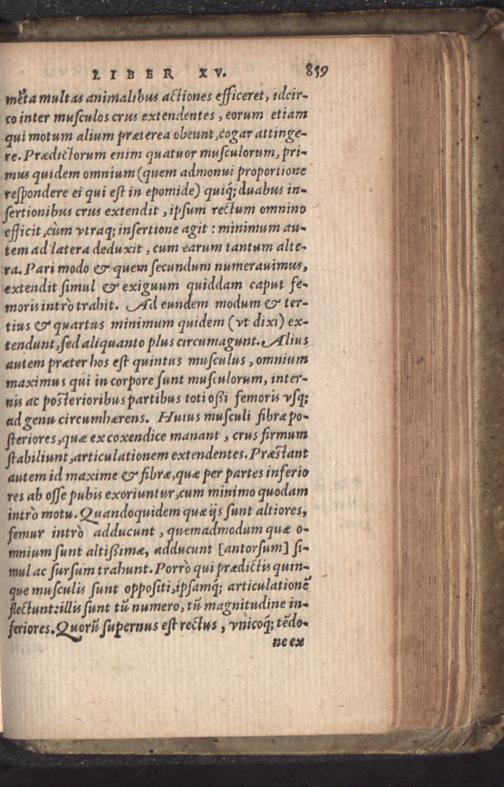 LIBER XV. 859
mẽta multas animalibus actiones efficeret, idcir-
co inter musculos crus extendentes, eorum etiam
qui motum alium præterea obeunt, cogar attinge-
re. Prædictorum enim quatuor musculorum, pri-
mus quidem omnium (quem admonui proportione
respondere ei qui est in epomide) quiq; duabus in-
sertionibus crus extendit, ipsum rectum omnino
efficit, cùm vtraq; insertione agit: minimum au-
tem ad latera deduxit, cum earum tantum alte-
ra. Pari modo & quem secundum numerauimus,
extendit simul & exiguum quiddam caput fe-
moris intrò trahit. Ad eundem modum & ter-
tius & quartus minimum quidem (vt dixi) ex-
tendunt, sed aliquanto plus circumagunt. Alius
autem præter hos est quintus musculus, omnium
maximus qui in corpore sunt musculorum, inter-
nis ac posterioribus partibus toti ossi femoris vsq;
ad genu circumhærens. Huius musculi fibræ po-
steriores, quæ ex coxendice manant, crus firmum
stabiliunt, articulationem extendentes. Præstant
autem id maxime & fibræ, quæ per partes inferio
res ab osse pubis exoriuntur, cum minimo quodam
intrò motu. Quandoquidem quæ ijs sunt altiores,
femur intrò adducunt, quemadmodum quæ o-
mnium sunt altissimæ, adducunt [antorsum] si-
mul ac sursum trahunt. Porrò qui prædictis quin-
que musculis sunt oppositi, ipsamq; articulationẽ
flectunt: illis sunt tũ numero, tũ magnitudine in-
feriores. Quorũ supernus est rectus, vnicoq; tẽdo-
ne ex